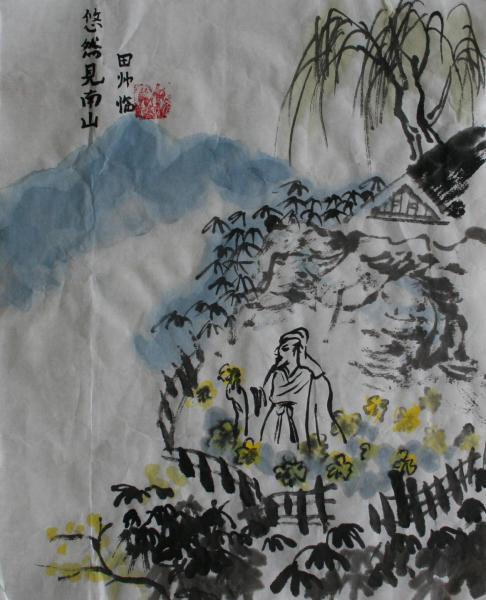 悠然见南山
田帅临